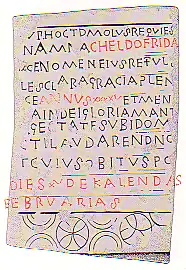 SPHOCTOMOLUSREQVIES
NAMMACHELDOFRIDA
ICENOMENEIVSREFVL
LESCLARAGRACIAPLEN
CEANNVSXXXVETMEN
AINDEIGLORIAMANT
SECTATESVBIDOM
STILAVDARENDNC
TCVIVSOBITVSPC
DIESXVDEKALENDAS
FEBRVARIAS